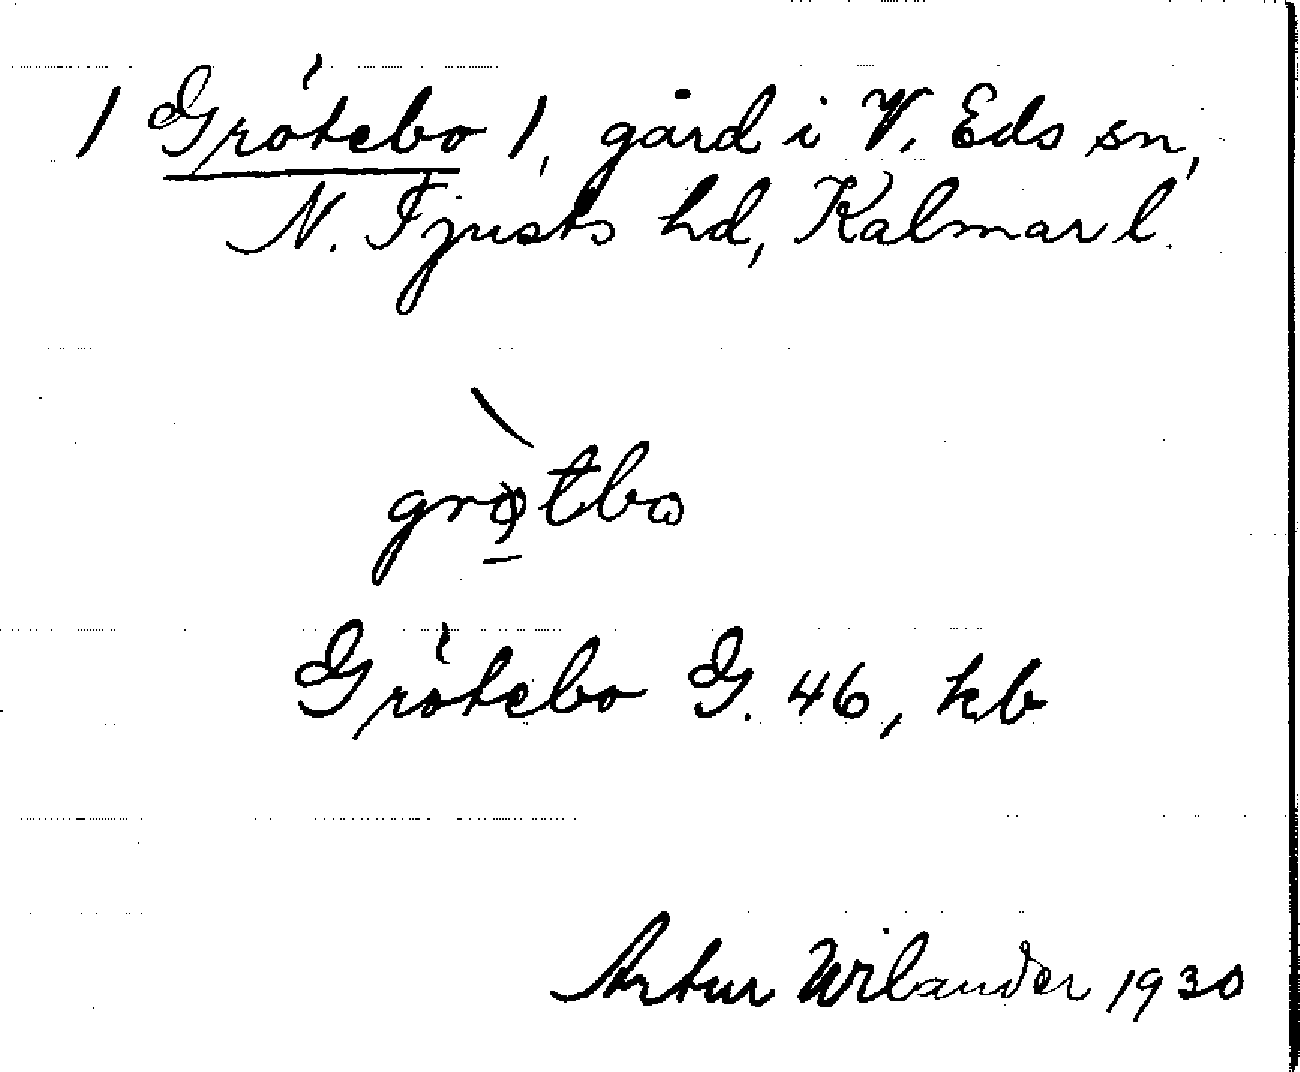 / Grótebo /, gård i V. Eds sn,
N. Tjusts hd, Kalmar l.
gròtbo
Grótebo G. 46, kb
Artur Wilander 1930